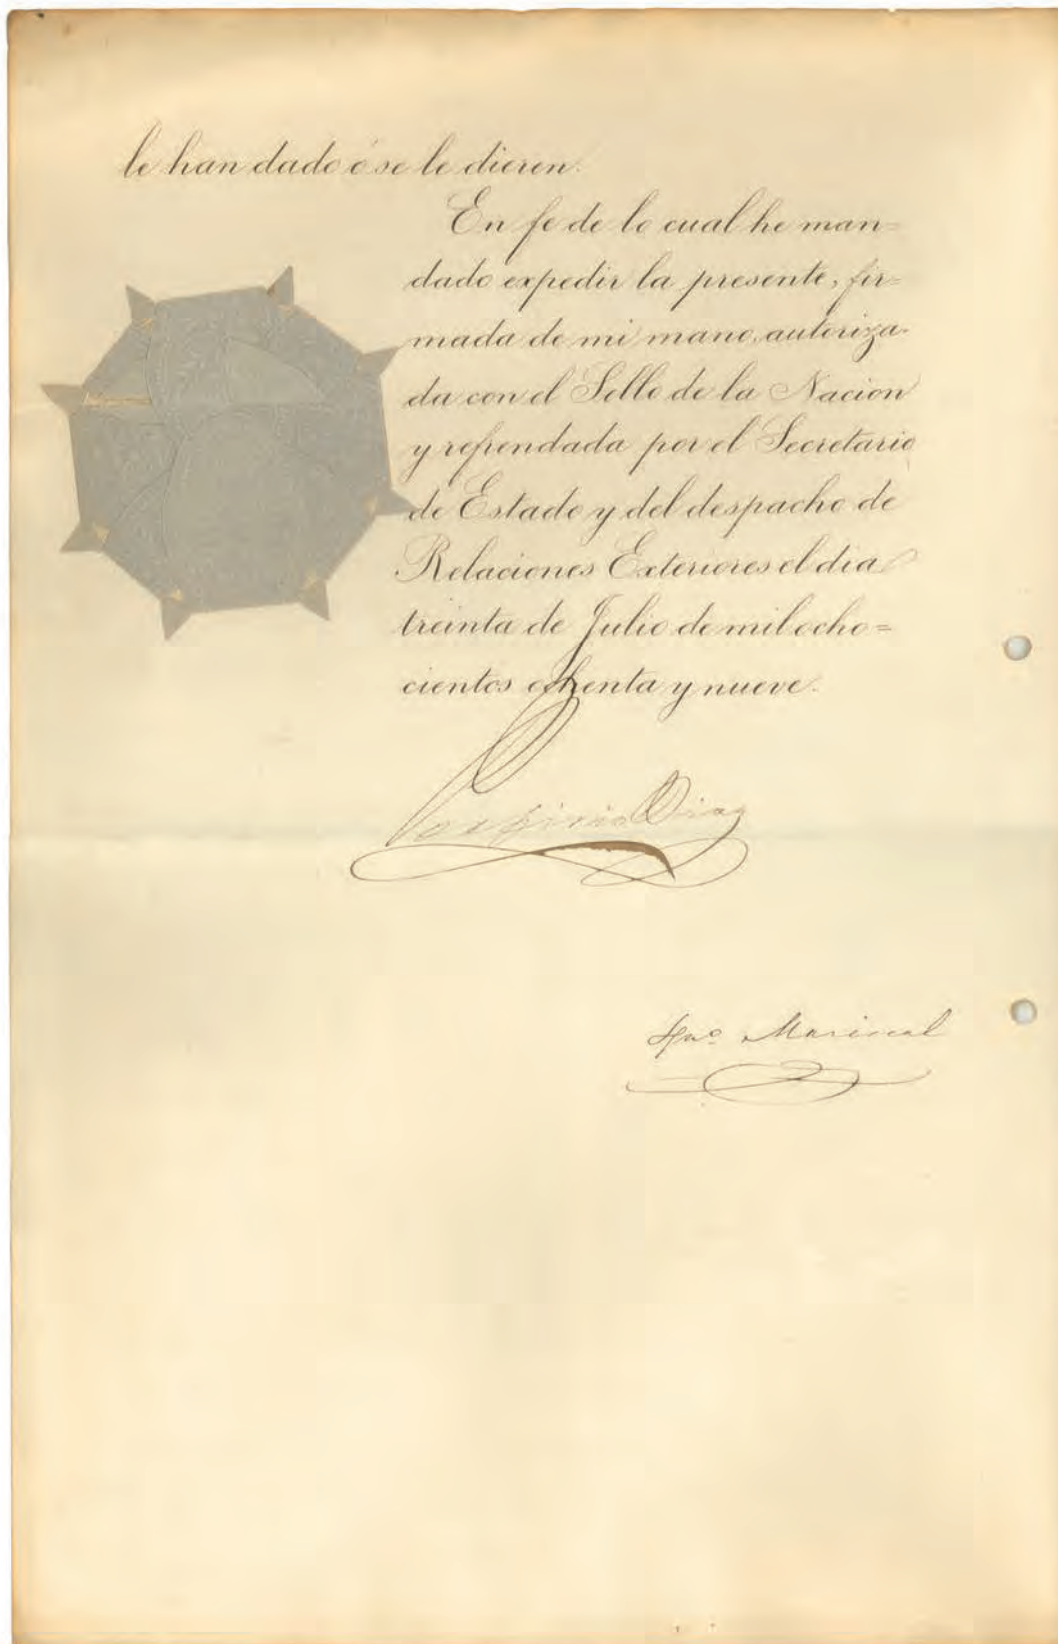 le han dado ó se le dieren.
En fe de lo cual he man=
dado expedir la presente, fir=
mada de mi mano, autoriza-
da con el Sello de la Nacion
y refrendada por el Secretario
de Estado y del despacho de
Relaciones Exteriores el dia
treinta de Julio de mil ocho=
cientos ochenta y nueve.
Porfirio Diaz
Igno. Mariscal